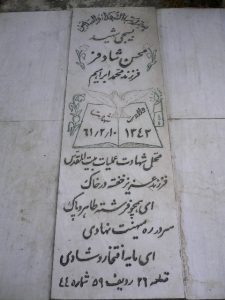 بسیجی شهید
محسن شادفر
فرزند محمد ابراهیم
ولادت شهادت
۱۳۴۳ ۶۱/۲/۱۰
محل شهادت عملیات بیت المقدس
فرزند عزیز خفته در خاک
ای همچو فرشته طاهر و پاک
سر در ره میهنت نهادی
ای مایه افتخار و شادی
قطعه ۲۶ ردیف ۵۹ شماره ۴۴